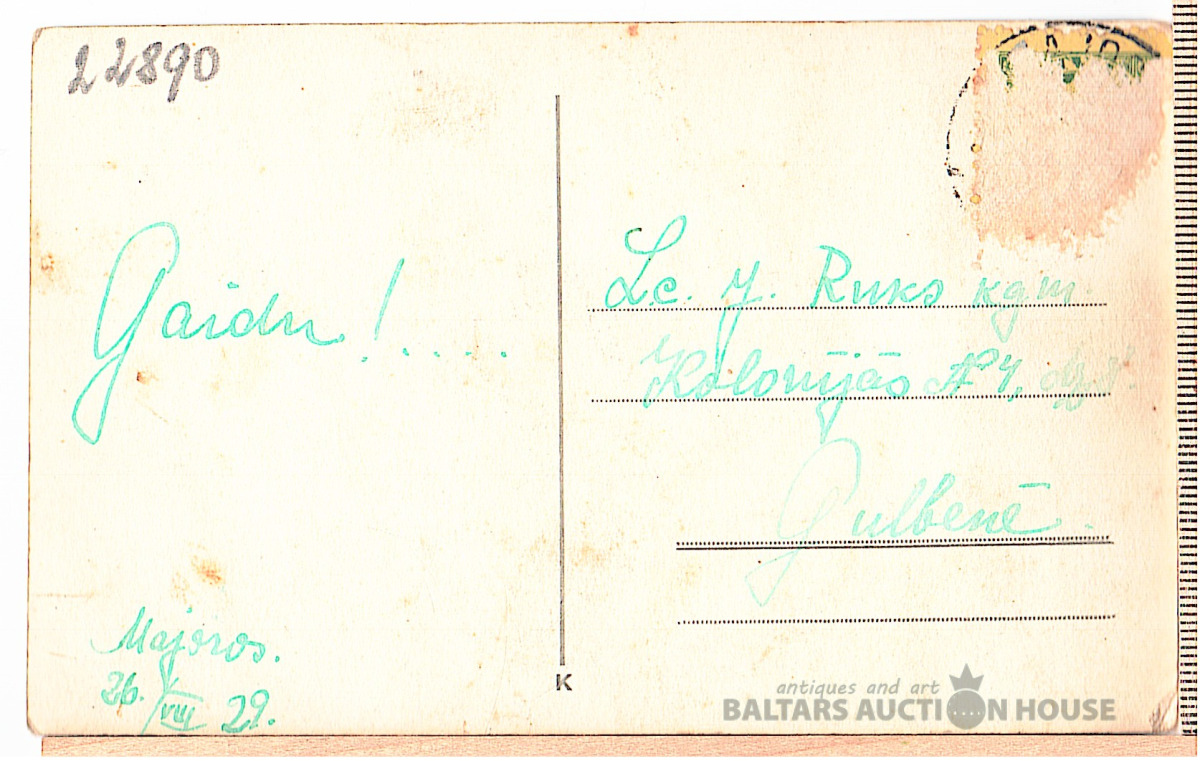 22890
Gaidu!.....
Majoros.
26./VIII 29.
Lc. J. Ruks kgm
Kolonijās № 4,
Gulbenē.
K
antiques and art
BALTARS AUCTION HOUSE